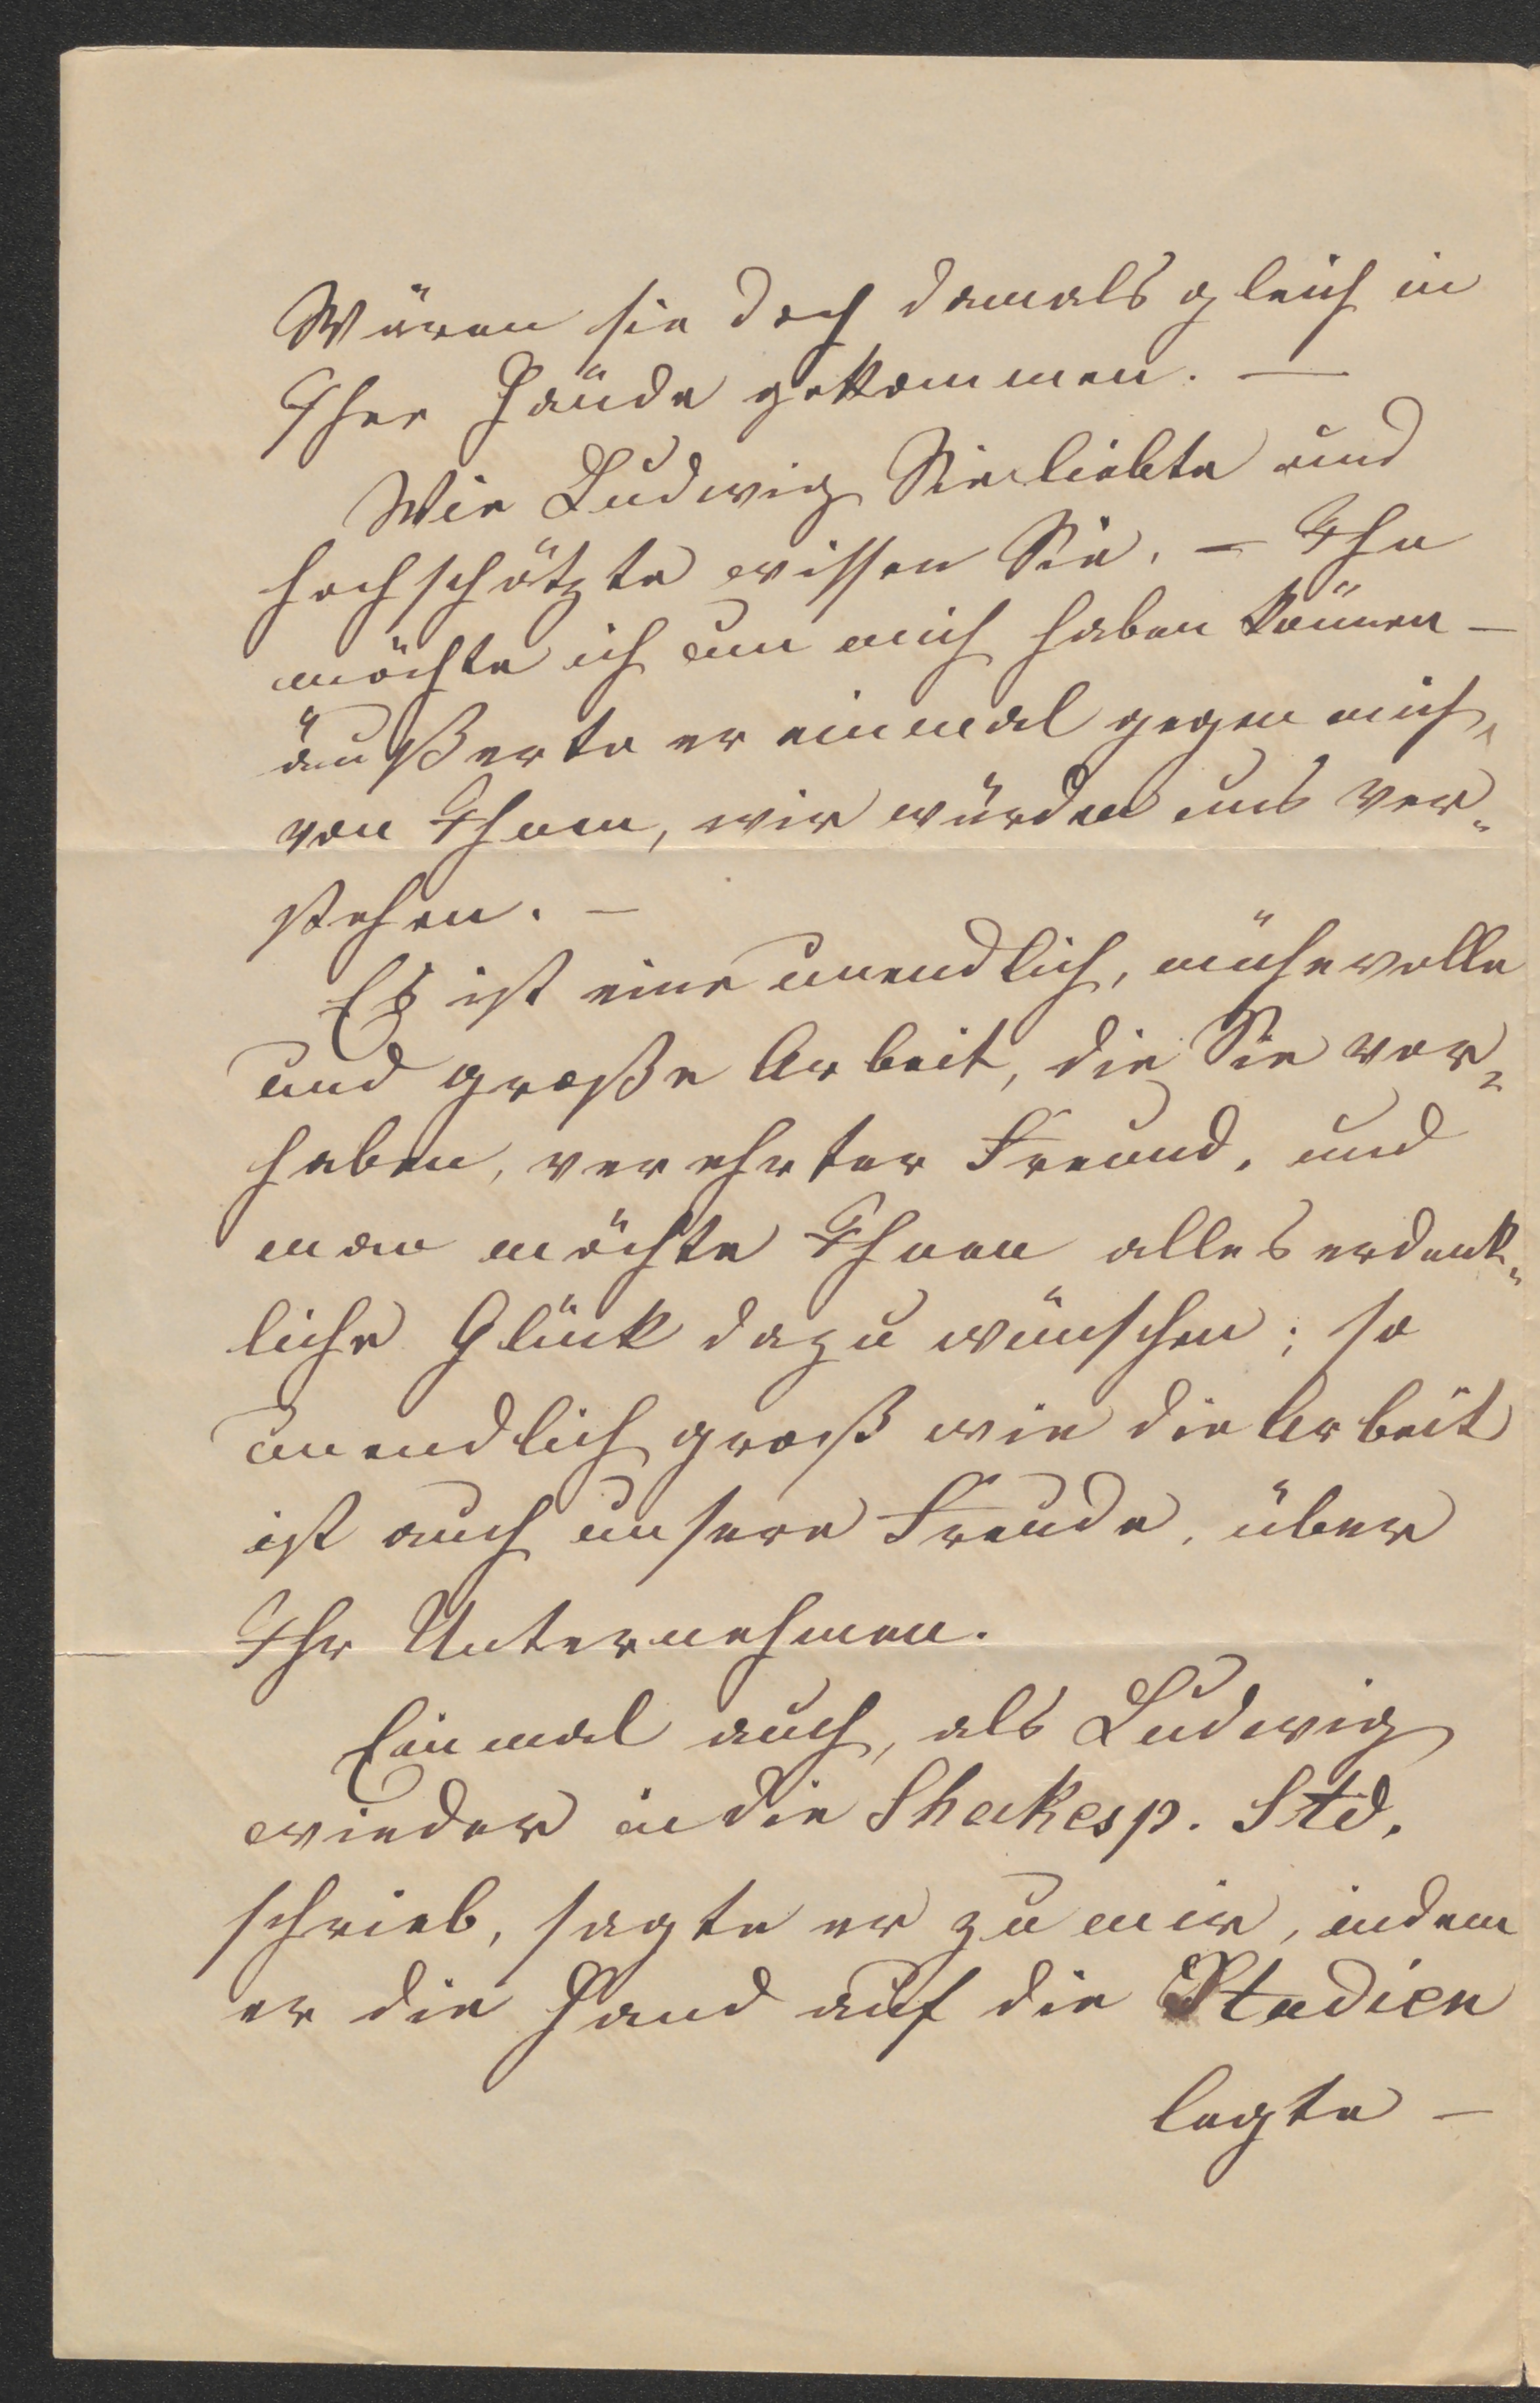 Wären sie doch damals gleich in
Ihre Hände gekommen. —
Wie Ludwig Sie liebte und
hochschätzte wissen Sie. — Ihn
möchte ich um mich haben können —
äußerte er einmal gegen mich,
von Ihnen, wir würden uns ver-
stehen. —
Es ist eine unendlich, mühevolle
und große Arbeit, die Sie vor-
haben, verehrter Freund, und
man möchte Ihnen alles erdenk-
liche Glück dazu wünschen; so
unendlich groß wie die Arbeit
ist auch unsere Freude, über
Ihr Unternehmen.
Einmal auch, als Ludwig
wieder in die Shakesp. Std.
schrieb, sagte er zu mir, indem
er die Hand auf die Studien
legte —